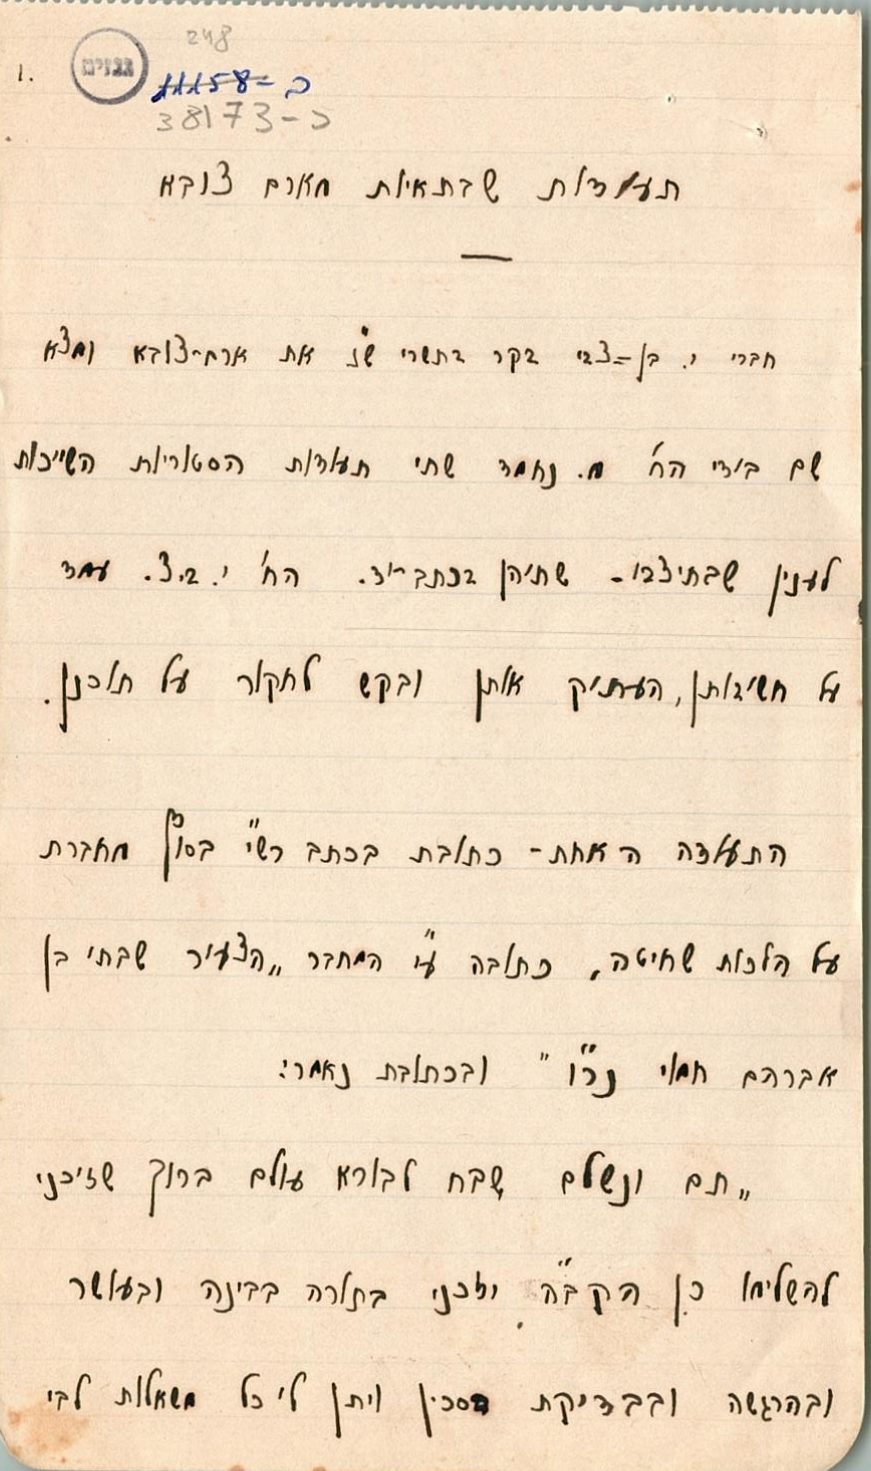 248
1.
גנזים
כ-11158
כ-38173
תעודות שבתאיות מארם צובא
חברי י. בן=צבי בקר בתשרי ש"ז את ארם-צובא ומצא
שם בידי הח' מ. נחמד שתי תעודות הסטוריות השייכות
לענין שבתי צבי - שתיהן בכתב-יד. הח' י. ב.צ. עמד
על חשיבותן, העתיק אותן ובקש לחקור על תוכנן.
התעודה האחת - כתובת בכתב רש"י בסוף מחברת
על הלכות שחיטה, כתובה ע"י המחבר „הצעיר שבתי בן
אברהם חמוי נר"ו" ובכתובת נאמר:
„תם ונשלם שבח לבורא עולם ברוך שזיכני
להשלימו כן הקב"ה יזכני בתורה בבינה ובעושר
ובהרגשה ובבדיקת הסכין ויתן לי כל משאלות לבי